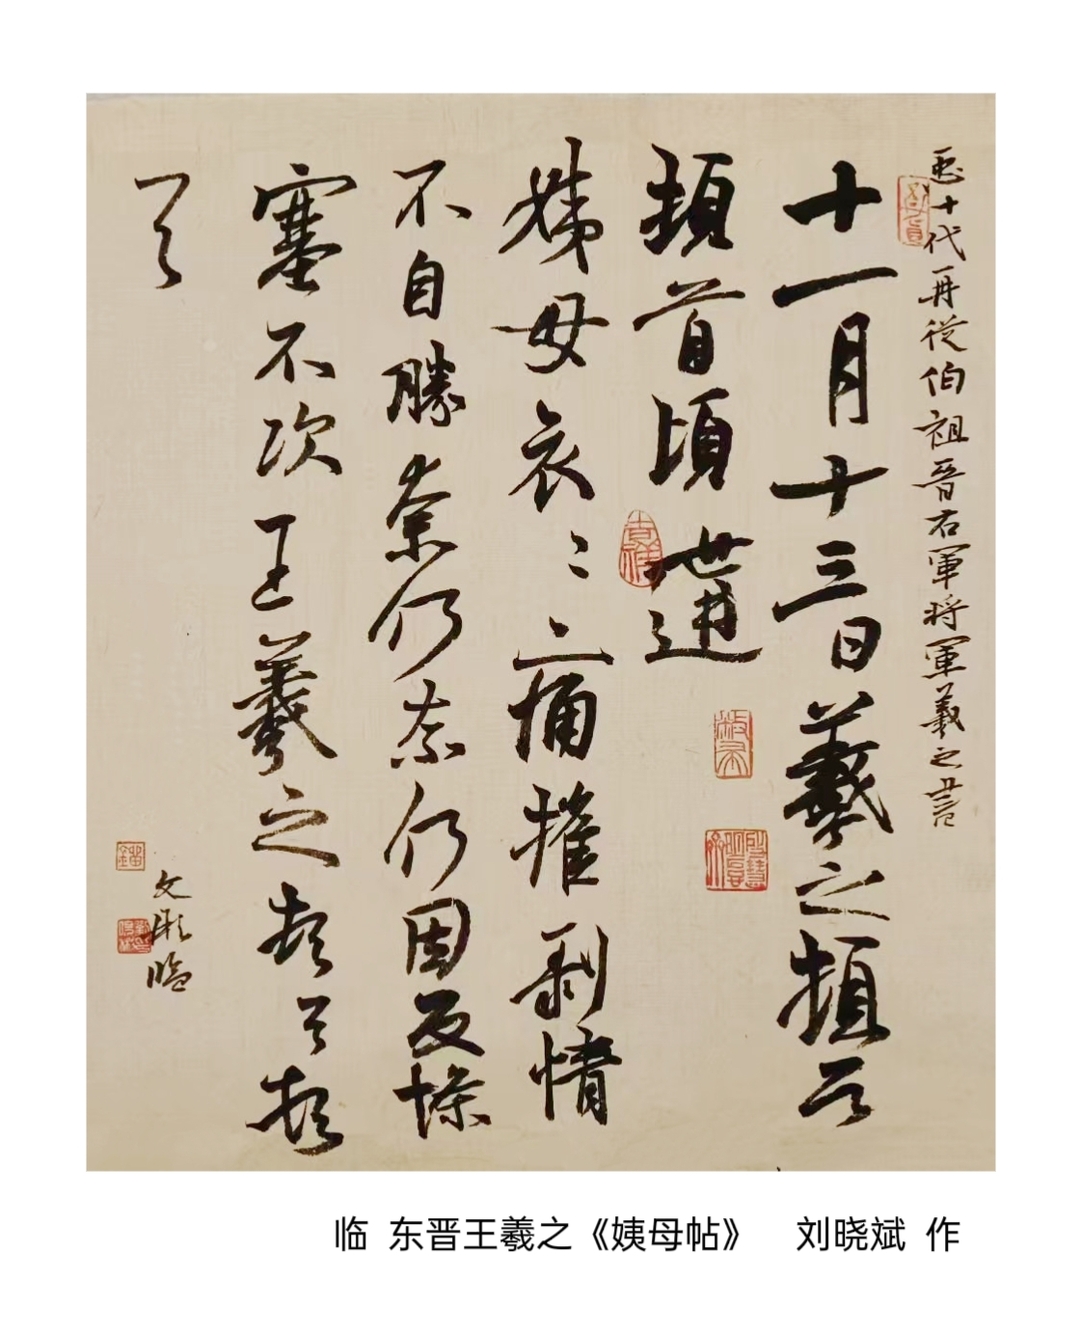 臣十代再從伯祖晉右軍將軍羲之書
十一月十三日羲之頓首
頓首頃遘
姨母哀〻痛摧剝情
不自勝奈何奈何因反慘
塞不次王羲之頓首頓
首
文臨
临 东晋王羲之《姨母帖》 刘晓斌 作